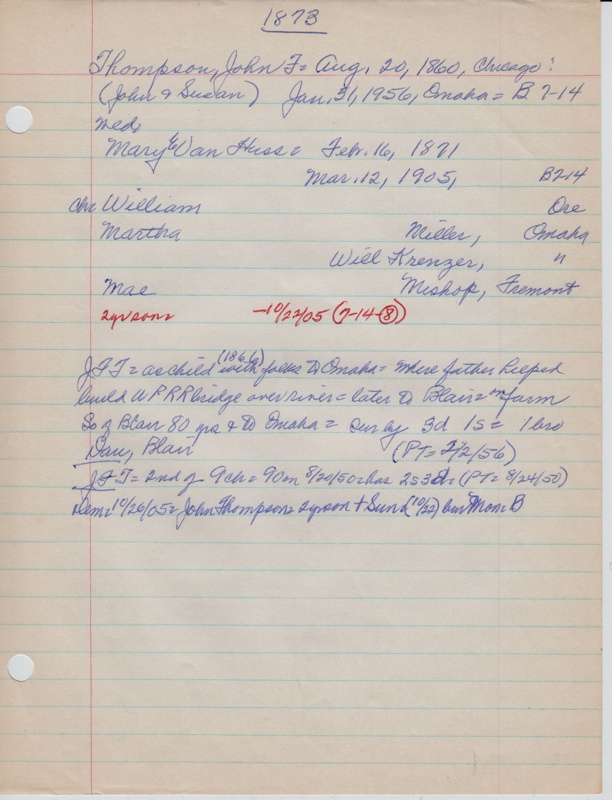 1873
Thompson, John F= Aug. 20, 1860, Chicago:
(John & Susan) Jan. 31, 1956, Omaha = B 7-14
med
Mary E Van Huss= Febr. 16, 1871
Mar. 12, 1905, B 2-14
chr William Ore
Martha Miller, Omaha
Will Krenzer, "
Mae Mishop, Fremont
2 yr son= -10/22/05 (7-14-8)
JFT= as child (1866) with folks to Omaha= where father helped
build UPRR bridge over river= later to Blair= on farm
So of Blair 80 yrs & to Omaha= sur by 3d 1s= 1 bro
Dau, Blair (PT= 2/2/56)
JFT= 2nd of 9 ch= 90 on 8/20/50= has 2s 3d= (PT= 8/24/50)
Dem= 10/26/05= John Thompson= 2yr son + Sund (10/22) bur Mon= B